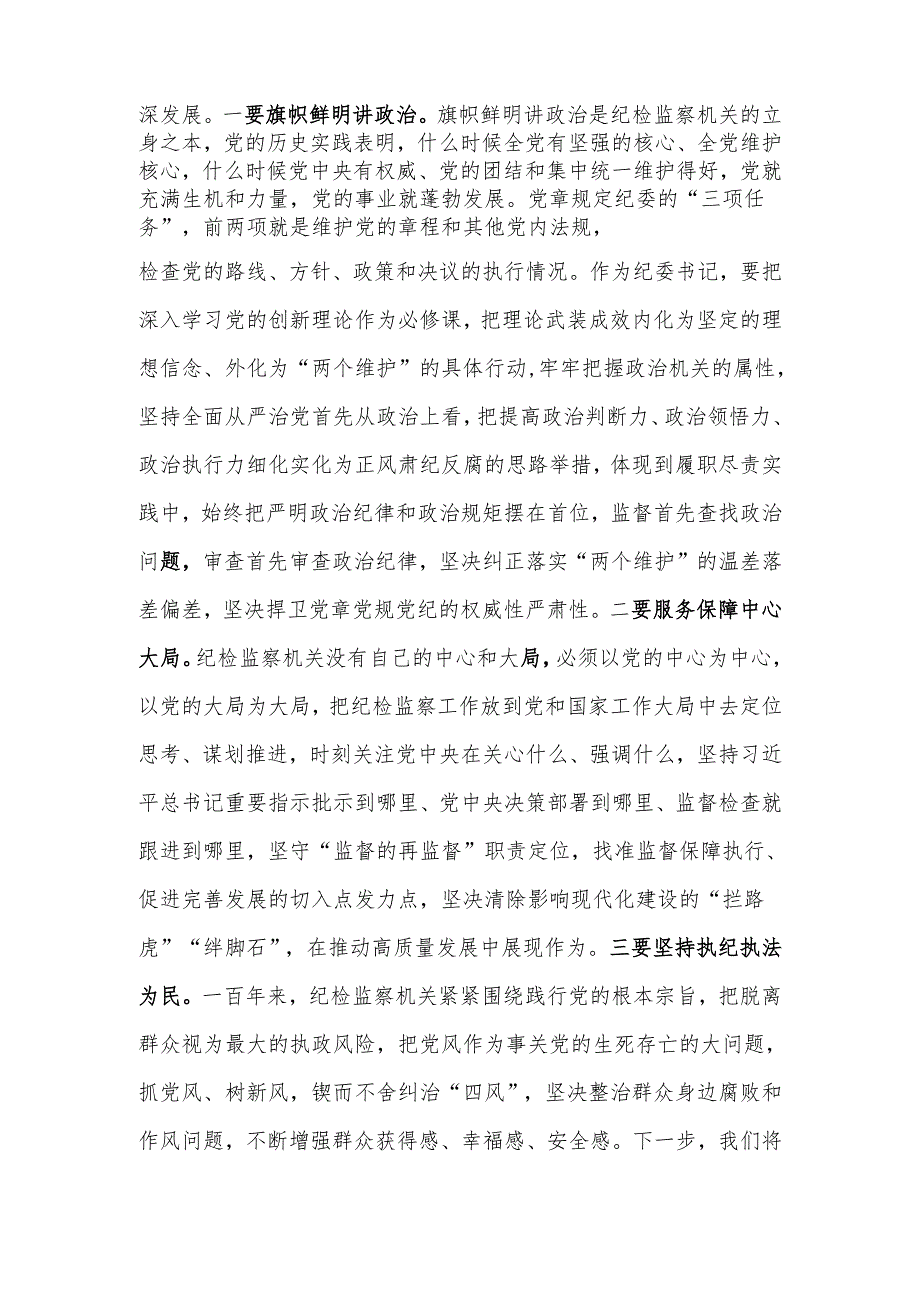 深发展。一要旗帜鲜明讲政治。旗帜鲜明讲政治是纪检监察机关的立
身之本，党的历史实践表明，什么时候全党有坚强的核心、全党维护
核心，什么时候党中央有权威、党的团结和集中统一维护得好，党就
充满生机和力量，党的事业就蓬勃发展。党章规定纪委的“三项任
务”，前两项就是维护党的章程和其他党内法规，
检查党的路线、方针、政策和决议的执行情况。作为纪委书记，要把
深入学习党的创新理论作为必修课，把理论武装成效内化为坚定的理
想信念、外化为“两个维护”的具体行动,牢牢把握政治机关的属性，
坚持全面从严治党首先从政治上看，把提高政治判断力、政治领悟力、
政治执行力细化实化为正风肃纪反腐的思路举措，体现到履职尽责实
践中，始终把严明政治纪律和政治规矩摆在首位，监督首先查找政治
问题，审查首先审查政治纪律，坚决纠正落实“两个维护”的温差落
差偏差，坚决捍卫党章党规党纪的权威性严肃性。二要服务保障中心
大局。纪检监察机关没有自己的中心和大局，必须以党的中心为中心，
以党的大局为大局，把纪检监察工作放到党和国家工作大局中去定位
思考、谋划推进，时刻关注党中央在关心什么、强调什么，坚持习近
平总书记重要指示批示到哪里、党中央决策部署到哪里、监督检查就
跟进到哪里，坚守“监督的再监督”职责定位，找准监督保障执行、
促进完善发展的切入点发力点，坚决清除影响现代化建设的“拦路
虎”“绊脚石”，在推动高质量发展中展现作为。三要坚持执纪执法
为民。一百年来，纪检监察机关紧紧围绕践行党的根本宗旨，把脱离
群众视为最大的执政风险，把党风作为事关党的生死存亡的大问题，
抓党风、树新风，锲而不舍纠治“四风”，坚决整治群众身边腐败和
作风问题，不断增强群众获得感、幸福感、安全感。下一步，我们将